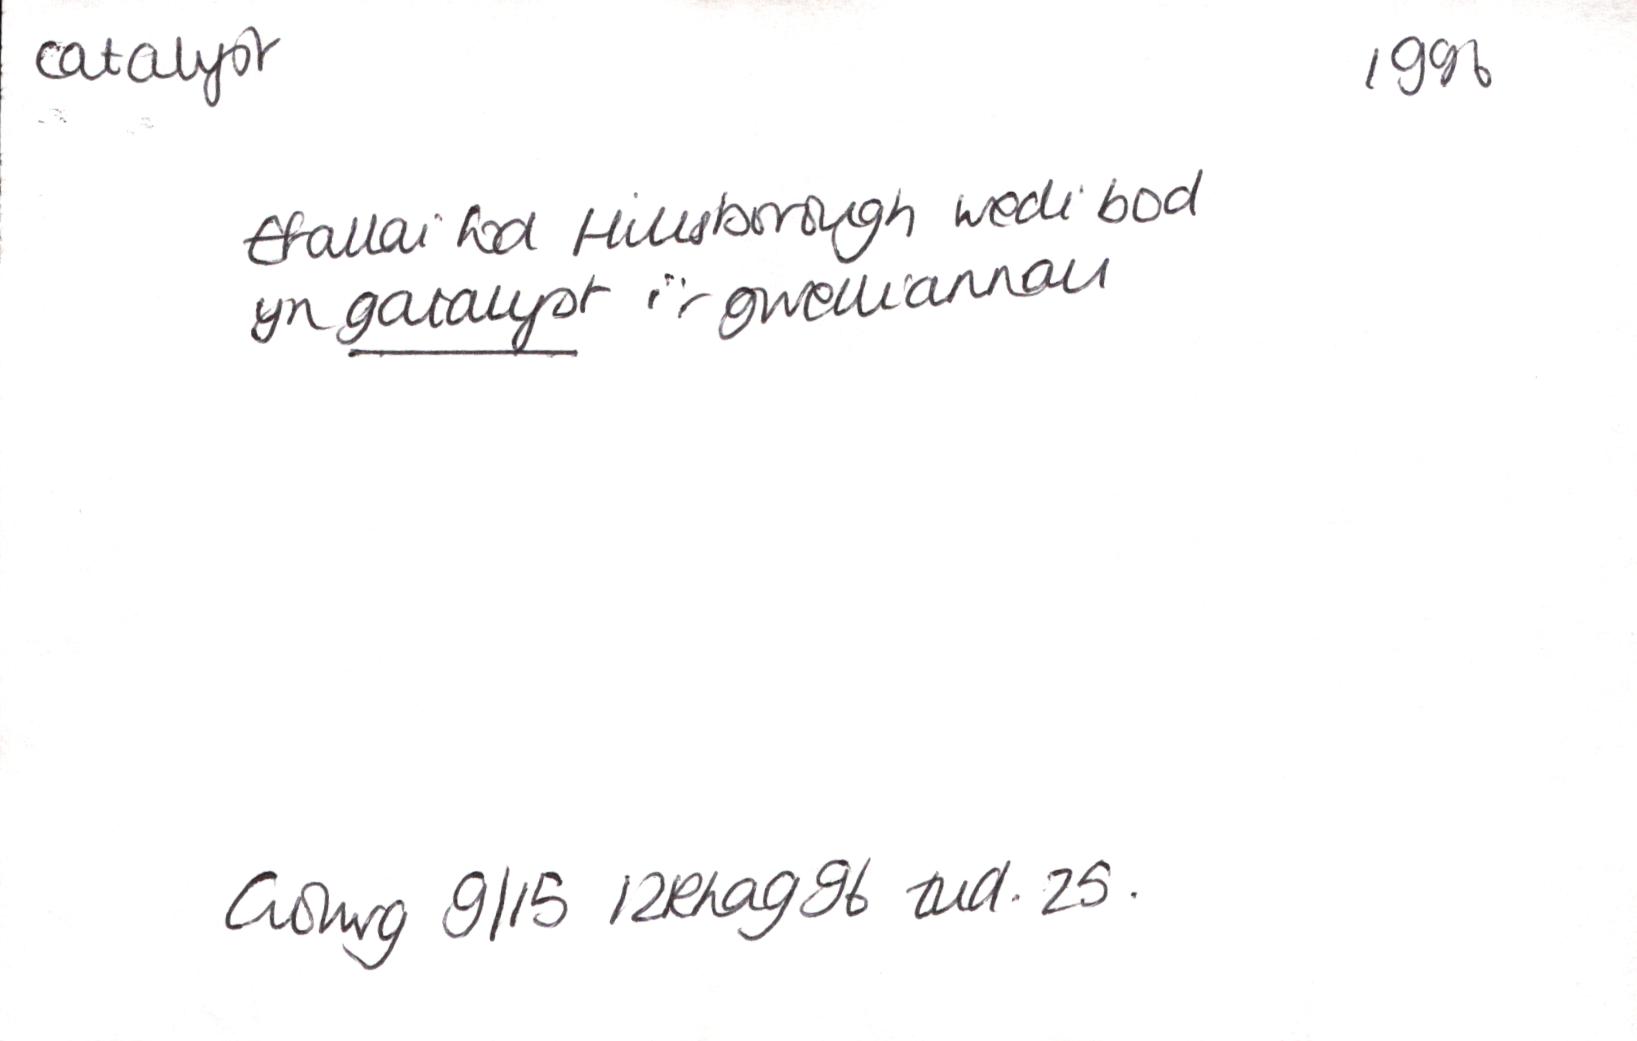 catalyst 1996
Efallai bod Hillsborough wedi bod
yn gatalyst i'r gwelliannau
Golwg 9/15 12Rhag96 tud. 25.